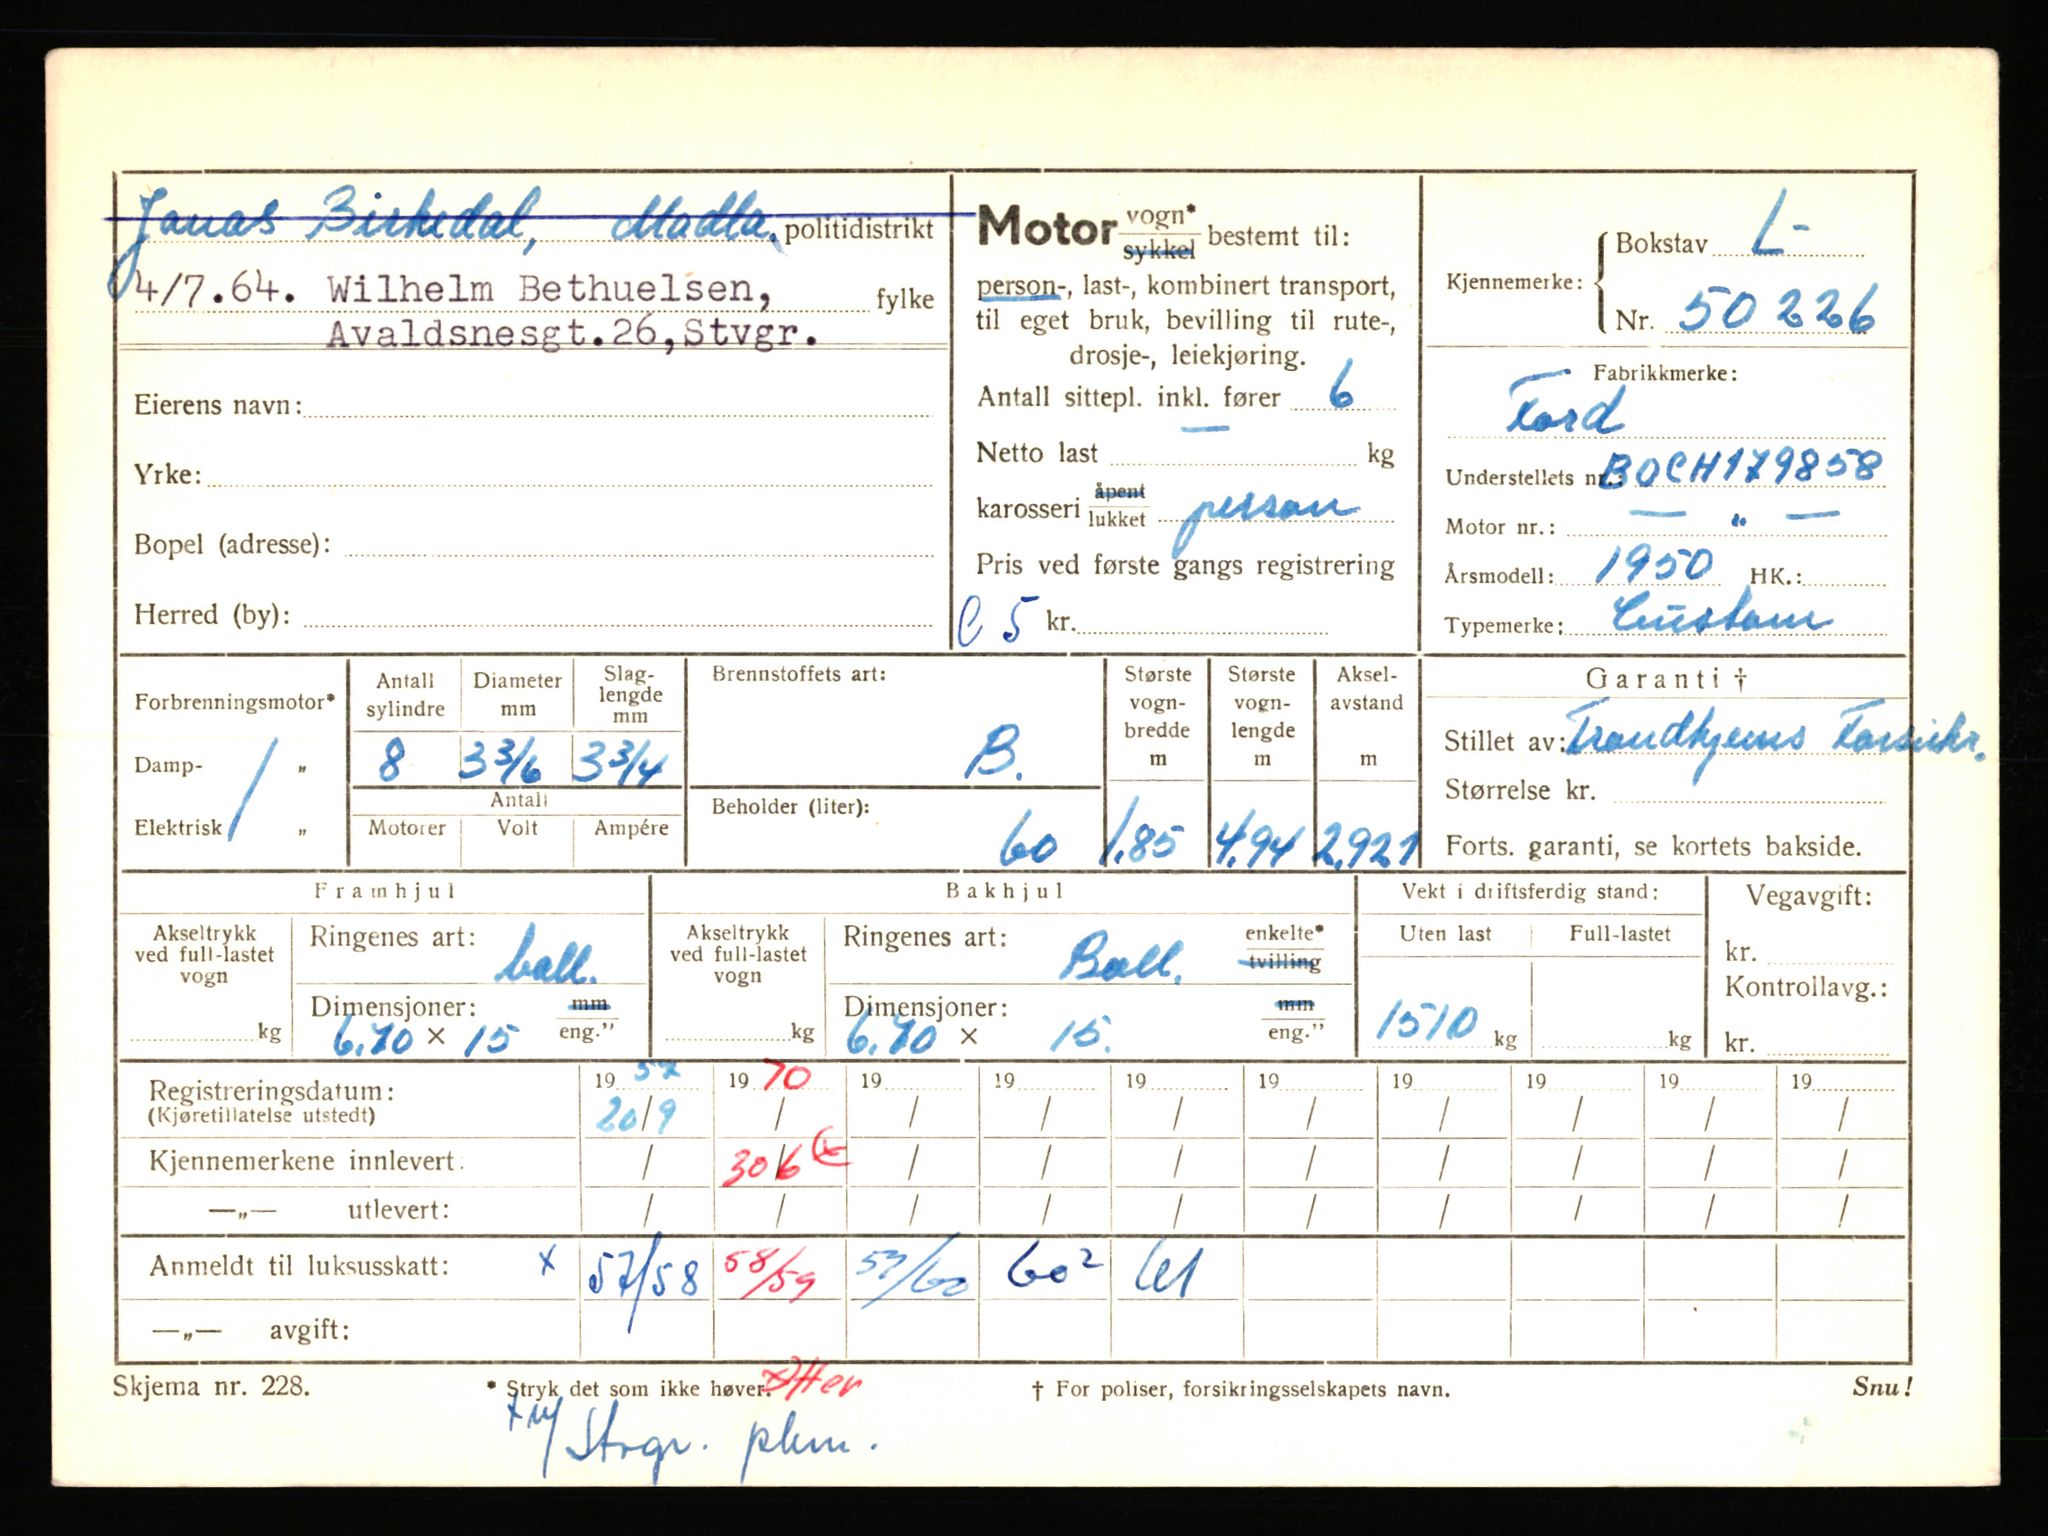 Jonas Birkedal, Madla. politidistrikt
4/7.64. Wilhelm Bethuelsen, fylke
Avaldsnesgt.26,Stvgr.
Eierens navn:
Yrke:
Bopel (adresse):
Herred (by):
Motor vogn* sykkel bestemt til:
person-, last-, kombinert transport,
til eget bruk, bevilling til rute-,
drosje-, leiekjøring.
Antall sittepl. inkl. fører 6
Netto last — kg
karosseri åpent lukket person
Pris ved første gangs registrering
C 5 kr.
Kjennemerke: Bokstav L-
Nr. 50226
Fabrikkmerke:
Ford
Understellets nr.: BOCH179858
Motor nr.: — " —
Årsmodell: 1950 HK.:
Typemerke: Custom
Forbrenningsmotor*
Damp- „
Elektrisk „
Antall sylindre
Diameter mm
Slag-lengde mm
8 3 3/16 3 3/4
Antall
Motorer Volt Ampére
Brennstoffets art:
B.
Beholder (liter):
60
Største vogn-bredde m
1.85
Største vogn-lengde m
4.94
Aksel-avstand m
2.921
Garanti †
Stillet av: Trondhjems Forsikr.
Størrelse kr.
Forts. garanti, se kortets bakside.
Framhjul
Akseltrykk ved full-lastet vogn
kg
Ringenes art: ball.
Dimensjoner: mm
6.70 × 15 eng."
Bakhjul
Akseltrykk ved full-lastet vogn
kg
Ringenes art: Ball. enkelte* tvilling
Dimensjoner: mm
6.70 × 15. eng."
Vekt i driftsferdig stand:
Uten last Full-lastet
1510 kg kg
Vegavgift:
kr.
Kontrollavg.:
kr.
Registreringsdatum: 19 57 19 70 19 19 19 19 19 19 19 19
(Kjøretillatelse utstedt) 20/9 / / / / / / / / /
Kjennemerkene innlevert: / 30/6 / / / / / / / /
—„— utlevert: / / / / / / / / / /
Anmeldt til luksusskatt: x 57/58 58/59 59/60 60² 61
—„— avgift:
Skjema nr. 228. * Stryk det som ikke høver. † For poliser, forsikringsselskapets navn. Snu!
Stvgr. pkm.